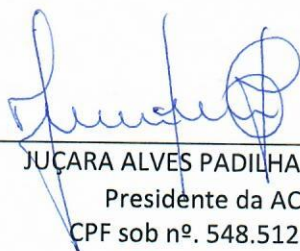 JUÇARA ALVES PADILHA
Presidente da AC
CPF sob nº. 548.512